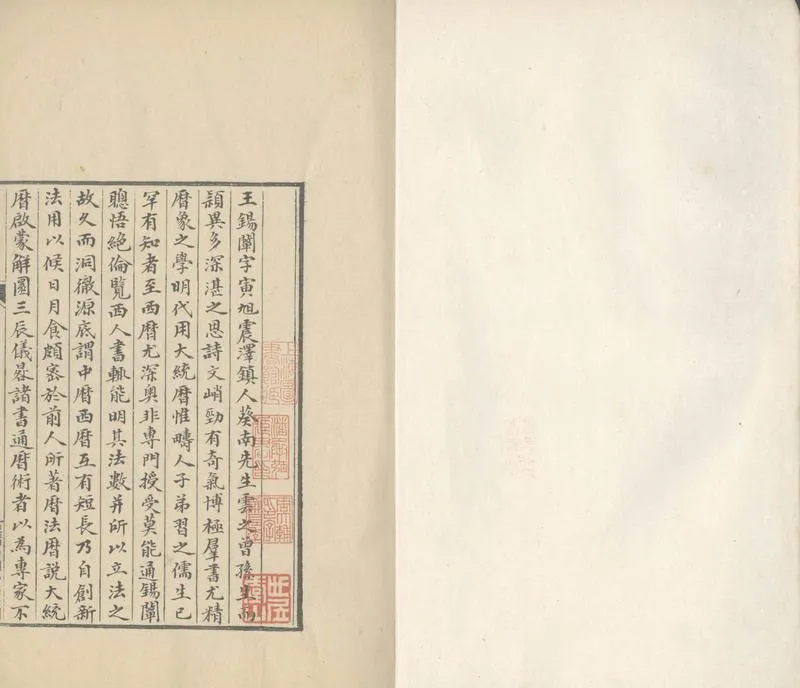 王錫闡字寅旭震澤鎮人葵南先生雲之曾孫生而
穎異多深湛之思詩文峭勁有奇氣博極羣書尤精
曆象之學明代用大統曆惟疇人子弟習之儒生已
罕有知者至西曆尤深奥非專門授受莫能通錫闡
聰悟絶倫覽西人書輒能明其法數并所以立法之
故久而洞徹源底謂中曆西曆互有短長乃自創新
法用以候日月食頗密於前人所著曆法曆說大統
曆啟蒙解圜三辰儀晷諸書通曆術者以為專家不